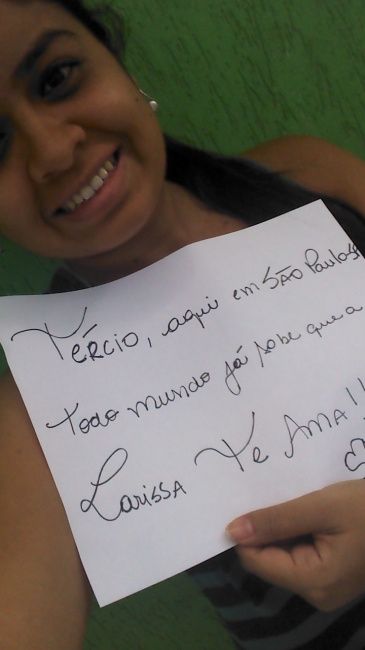 TÉRCIO, aqui em SÃO Paulo
todo mundo já sabe que a
Larissa Te AMA!!